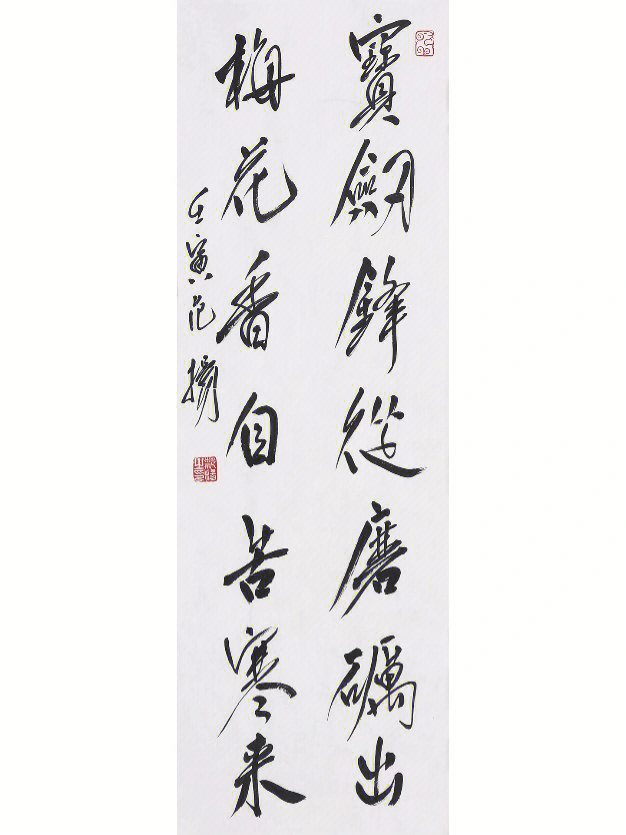 寶劍鋒從磨礪出
梅花香自苦寒来
壬寅范揚